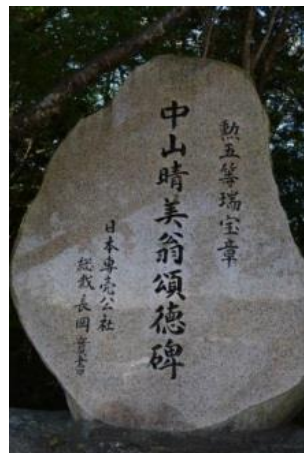 勲五等瑞宝章
中山晴美翁頌徳碑
日本専売公社
総裁長岡實書